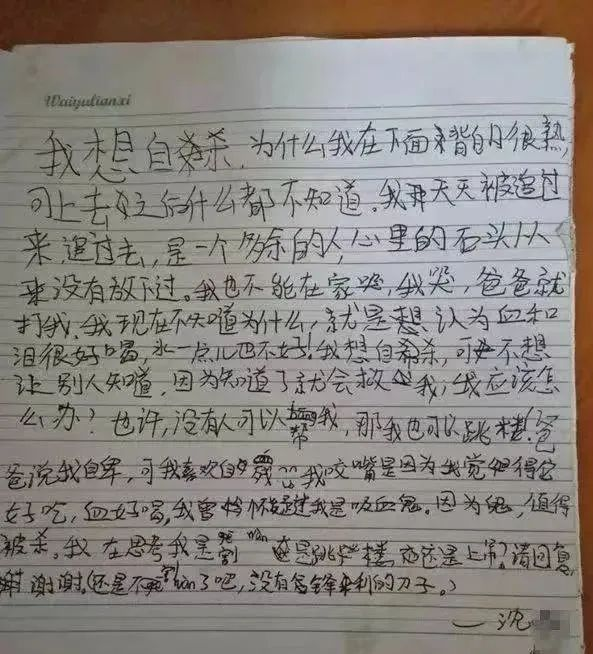 Waiyulianxi
我想自杀,为什么我在下面背的很熟,
可上去之后什么都不知道。我天天被追过
来追过去,是一个多余的人,心里的石头从
来没有放下过。我也不能在家哭,我哭,爸爸就
打我,我现在不知道为什么,就是想认为血和
泪很好喝,水一点儿也不好!我想自杀,可不想
让别人知道,因为知道了就会救我;我应该怎
么办?也许,没有人可以帮我,那我也可以跳楼!爸
爸说我自卑,可我喜欢自 我咬嘴是因为我觉得它
好吃,血好喝。我曾怀疑过我是吸血鬼。因为鬼,值得
被杀。我在思考我是割wàn还是跳楼,还是上吊?请回复,
谢谢。(还是不割wàn了吧,没有锋利的刀子。)
—沈